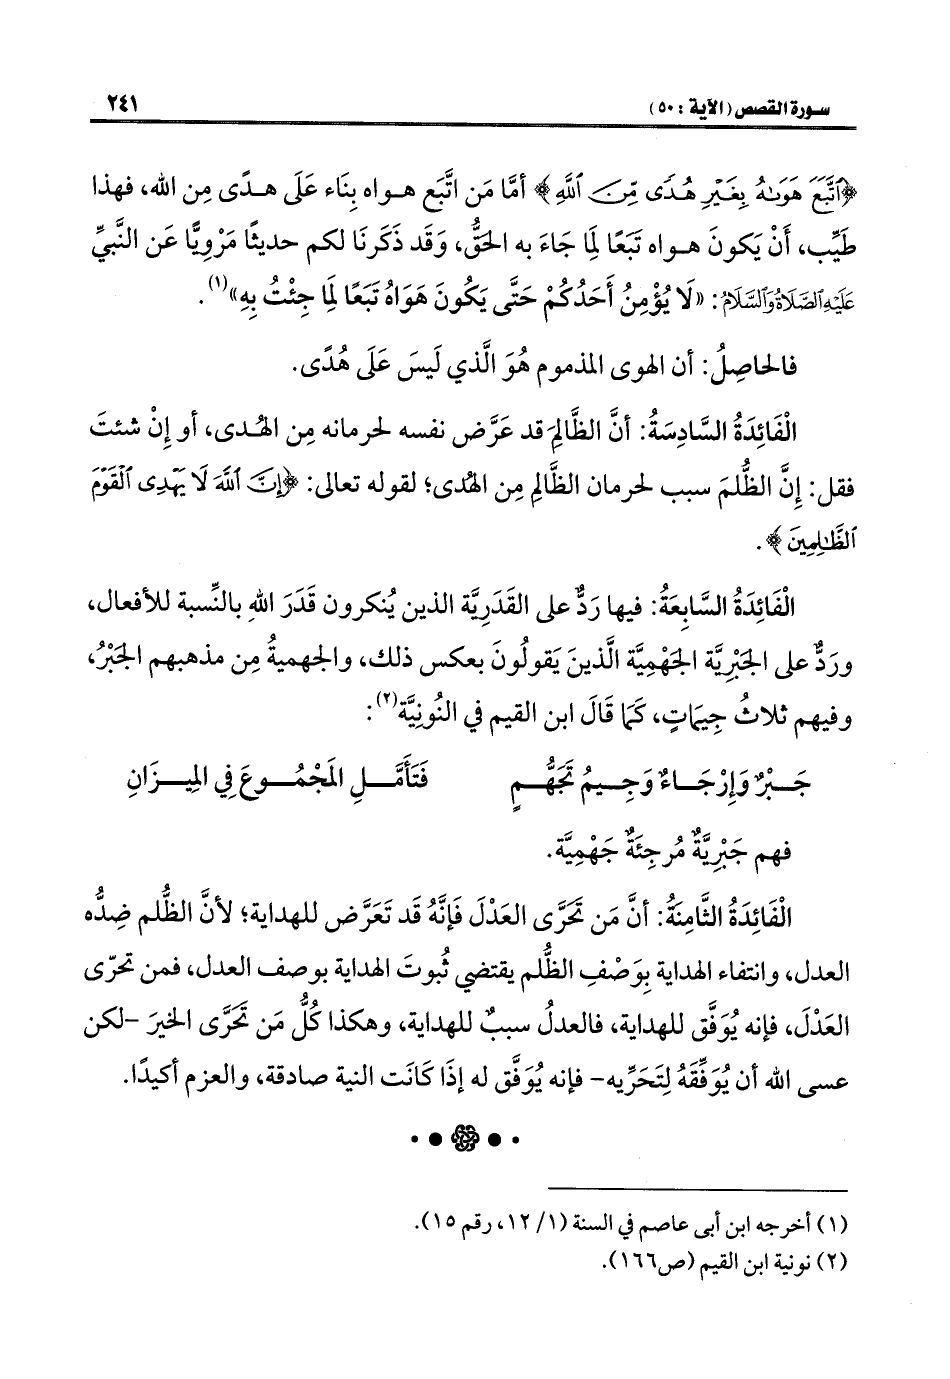 سورة القصص (الآية : ٥٠) ٢٤١
﴿ٱتَّبَعَ هَوَىٰهُ بِغَيْرِ هُدًى مِّنَ ٱللَّهِ﴾ أمَّا مَن اتَّبَع هـواه بِنَاء عَلَى هـدًى مِن الله، فهذا
طَيِّب، أَنْ يَكونَ هـواه تَبَعًا لِمَا جَاءَ به الحَقُّ، وَقَد ذَكَرنَا لكم حديثًا مَرْوِيًّا عَن النَّبيِّ
عَلَيْهِ ٱلصَّلَاةُ وَٱلسَّلَامُ: «لَا يُؤْمِنُ أَحَدُكُمْ حَتَّى يَكُونَ هَوَاهُ تَبَعًا لِمَا جِئْتُ بِهِ»(١).
فالحاصِلُ: أن الهوى المذموم هُوَ الَّذي لَيسَ عَلَى هُدًى.
الْفَائِدَةُ السَّادِسَةُ: أنَّ الظَّالِمَ قد عَرَّض نفسه لحرمانه مِن الهُدى، أو إِنْ شئتَ
فقل: إنَّ الظُّلمَ سبب لحرمان الظَّالِم مِن الهُدى؛ لقوله تعالى: ﴿إِنَّ ٱللَّهَ لَا يَهْدِى ٱلْقَوْمَ
ٱلظَّٰلِمِينَ﴾.
الْفَائِدَةُ السَّابِعَةُ: فيها رَدٌّ على القَدَرِيَّة الذين يُنكرون قَدَرَ اللهِ بالنِّسبة للأفعال،
وردٌّ على الجَبْرِيَّة الجَهْمِيَّة الَّذينَ يَقولُونَ بعكس ذلك، والجهميةُ مِن مذهبهم الجَبْرُ،
وفيهم ثلاثُ جِيمَاتٍ، كَمَا قَالَ ابن القيم في النُّونِيَّة(٢):
جَـبْرٌ وَإِرْجَـاءٌ وَجِـيمُ تَجَهُّـمٍ فَتَأَمَّـلِ المَجْمُـوعَ فِي المِيـزَانِ
فهم جَبْرِيَّةٌ مُرجِئَةٌ جَهْمِيَّة.
الْفَائِدَةُ الثَّامِنَةُ: أنَّ مَن تَحَرَّى العَدْلَ فَإنَّهُ قَد تَعَرَّض للهداية؛ لأنَّ الظُّلم ضِدُّه
العدل، وانتفاء الهداية بِوَصْفِ الظُّلم يقتضي ثُبوتَ الهداية بوصف العدل، فمن تحرّى
العَدْلَ، فإنه يُوَفَّق للهداية، فالعدلُ سببٌ للهداية، وهكذا كُلُّ مَن تَحَرَّى الخيرَ –لكن
عسى الله أن يُوَفِّقَهُ لِتَحَرِّيه– فإنه يُوَفَّق له إذَا كَانَت النية صادقة، والعزم أكيدًا.
(١) أخرجه ابن أبى عاصم في السنة (١/ ١٢، رقم ١٥).
(٢) نونية ابن القيم (ص١٦٦).